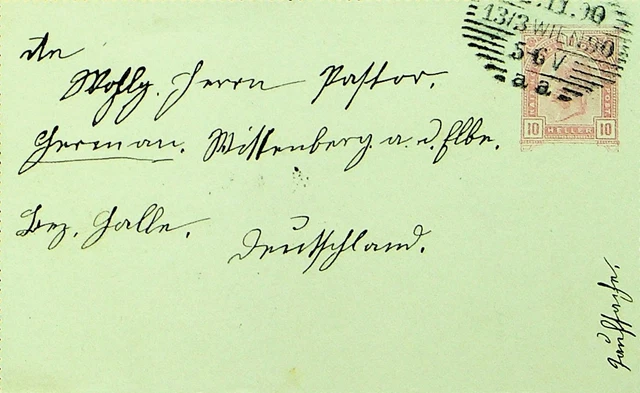 An
Wohlg. Herrn Pastor.
Herman. Wittenberg a. d. Elbe.
Bez. Halle.
Deutschland.
.11.00
13/3 WIEN 90
5 G V
a a
10 HELLER 10